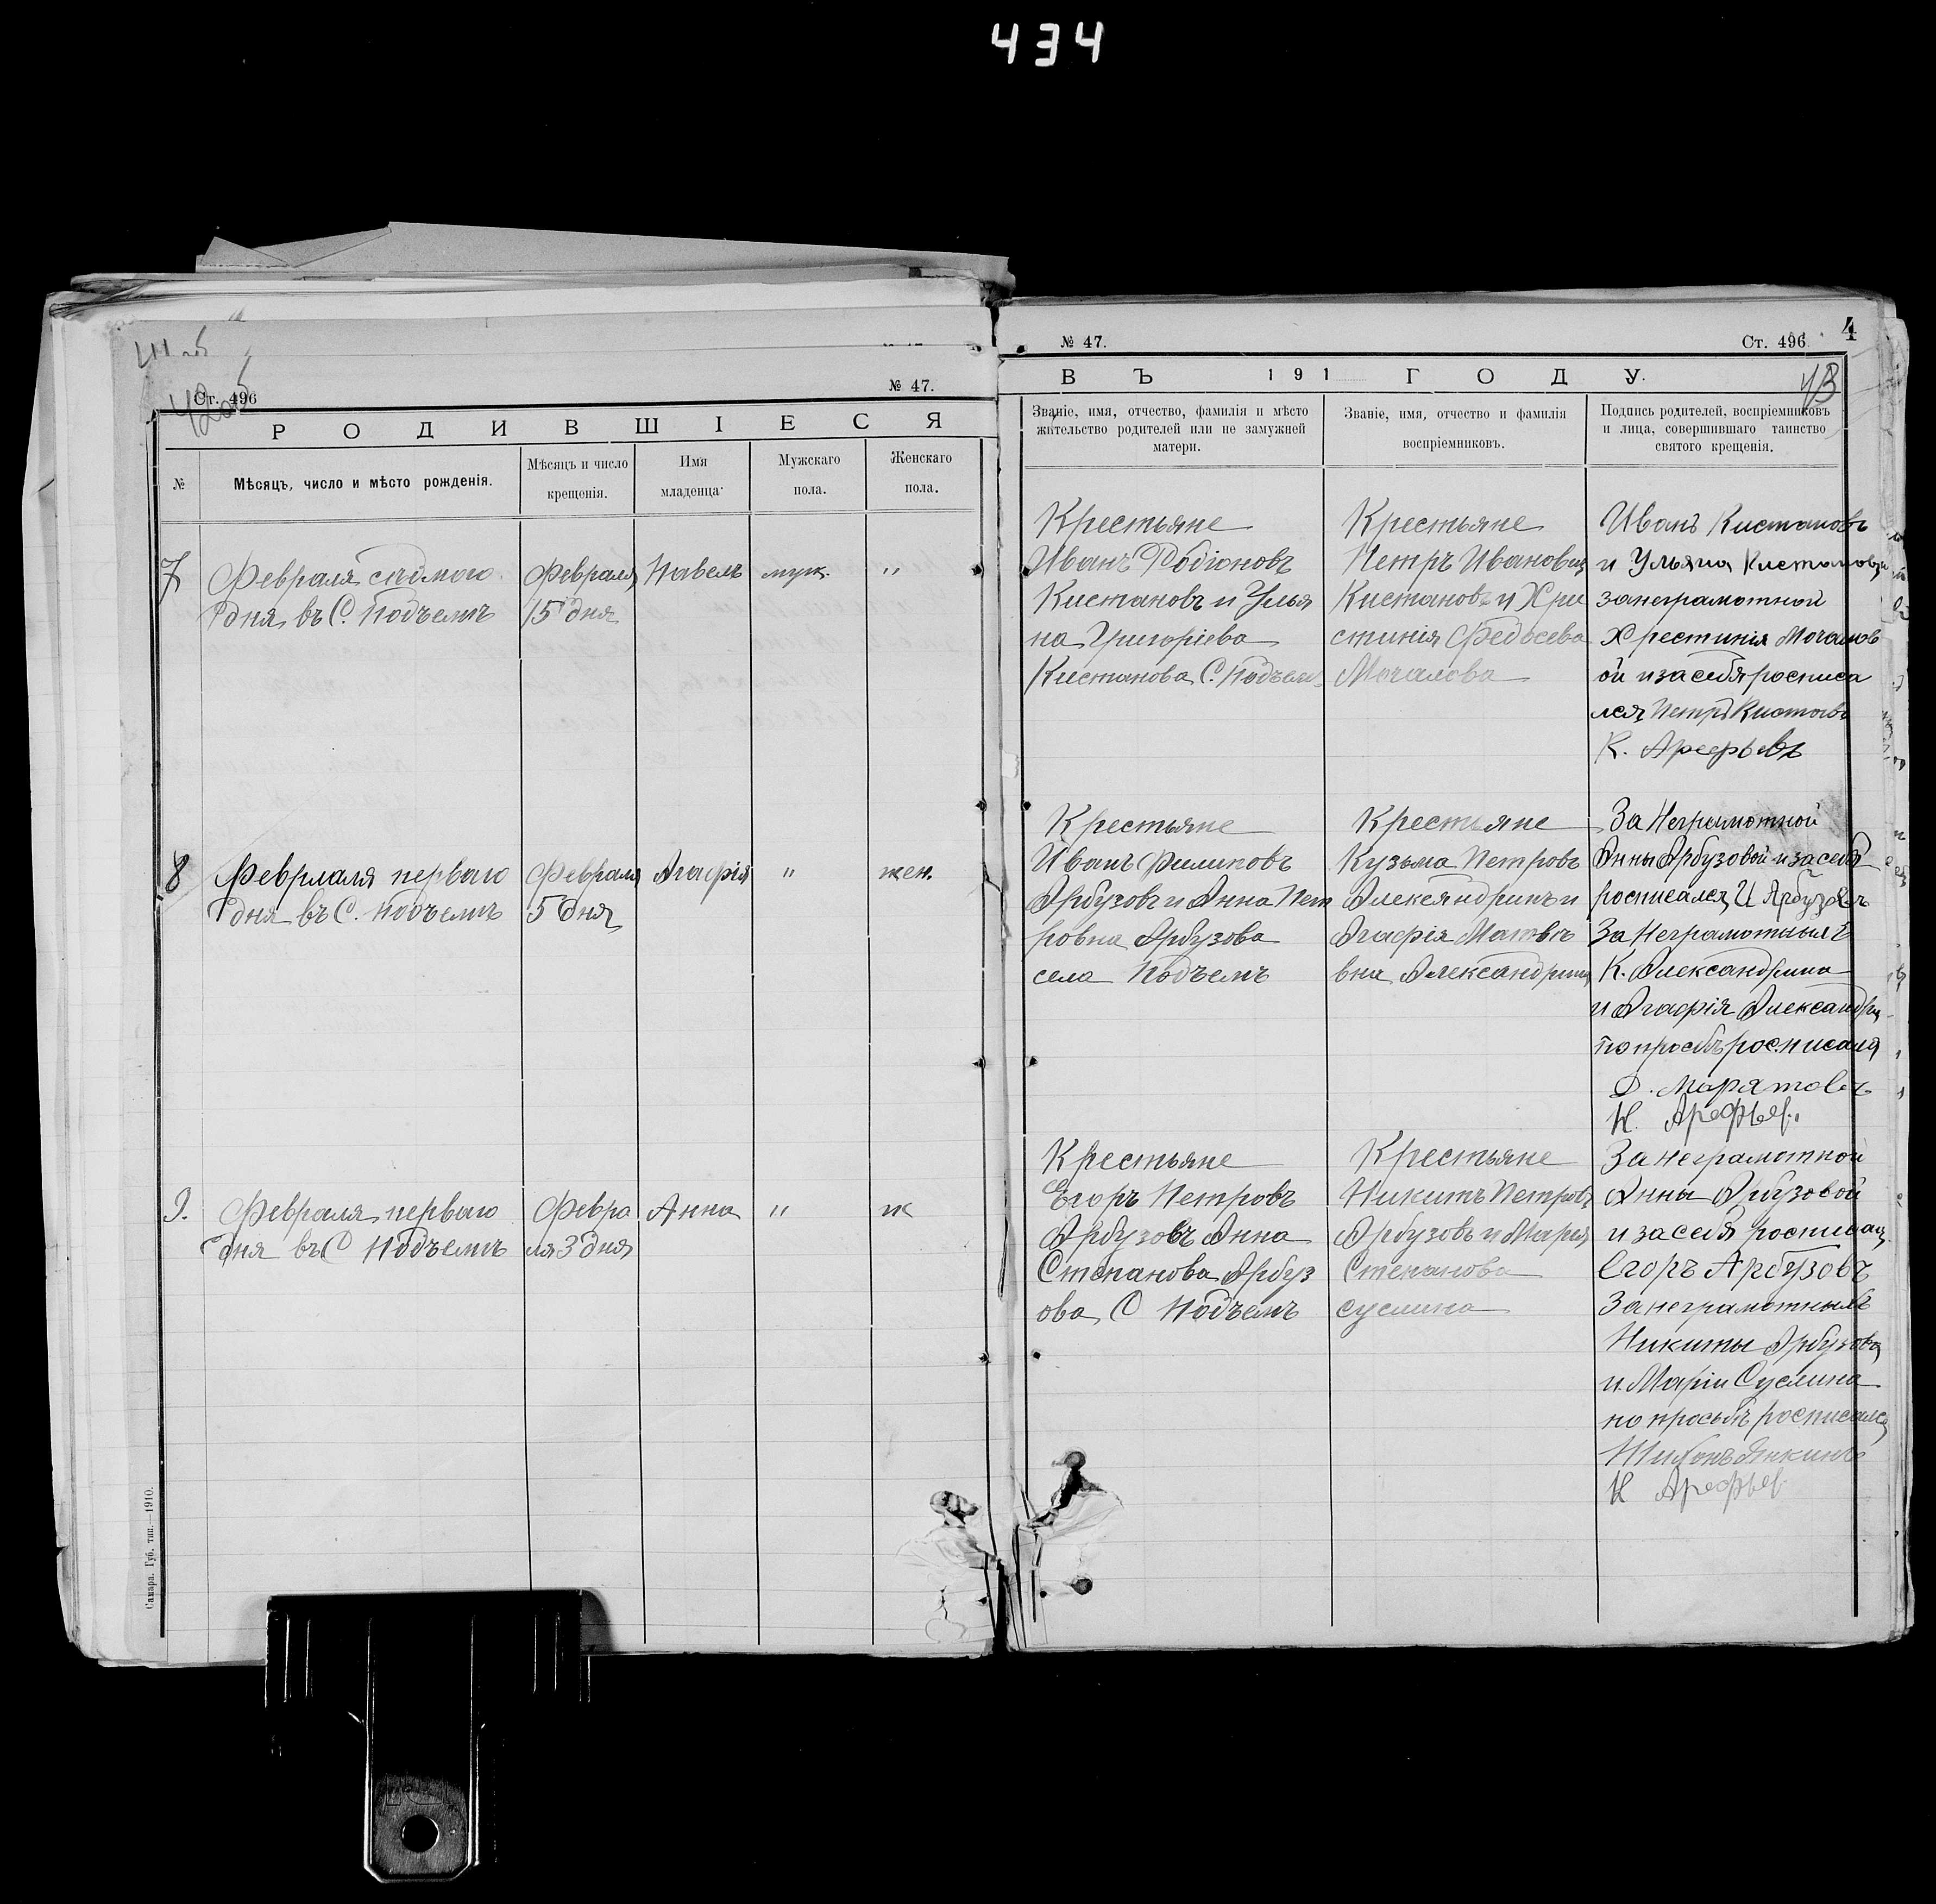 434
42об
Ст. 496
№ 47.
РОДИВШІЕСЯ
№
Мѣсяцъ, число и мѣсто рожденія.
Мѣсяцъ и число
крещенія.
Имя
младенца
Мужскаго
пола.
Женскаго
пола.
7
Февраля седмого
дня въ С. Подъемъ
Февраля
15 дня
Павелъ
муж.
"
8
Феврлаля перваго
дня въ С. Подъемъ
Февраля
5 дня
Агафія
"
жен.
9.
Февраля перваго
дня въ С Подъемъ
Февра
ля 3 дня
Анна
"
ж
Самара. Губ. тип.—1910.
№ 47.
Ст. 496
4
43
ВЪ 191 ГОДУ.
Званіе, имя, отчество, фамилія и мѣсто
жительство родителей или не замужней
матери.
Званіе, имя, отчество и фамилія
воспріемниковъ.
Подпись родителей, воспріемниковъ
и лица, совершившаго таинство
святого крещенія.
Крестьяне
Иванъ Родіоновъ
Кистановъ и Улья
на Григоріева
Кистанова С. Подъем
Крестьяне
Петръ Ивановиц
Кистановъ и Хри
стинія Федосева
Мочалова
Иванъ Кистановъ
и Ульяна Кистановa
за неграмотной
Хрестинія Мочалов
ой и за себя росписа
лся Петръ
К. Арефьевъ
Крестьяне
Иванъ Филиповъ
Арбузовъ и Анна Пет
ровна Арбузова
села Подъемъ
Крестьяне
Кузьма Петровъ
Александринъ и
Агафія Матвѣ
вна Александрина
За Неграмотной
Анны Арбузовой и за себя
росписался И Арбузовъ
За Неграмотныя
К. Александрина
и Агафія Александри
по просбѣ росписаля
К. Арефьев.
Крестьяне
Егоръ Петровъ
Арбузовъ Анна
Степанова Арбуз
ова С Подъемъ
Крестьяне
Никитъ Петровъ
Арбузовъ и Марія
Степанова
Суслина
За неграмотной
Анны Арбузовой
и за себя росписал
Егоръ Арбузовъ
За неграмотныхъ
Никиты Арбузова
и Маріи Суслина
по просьбѣ росписался
К Арефьев.